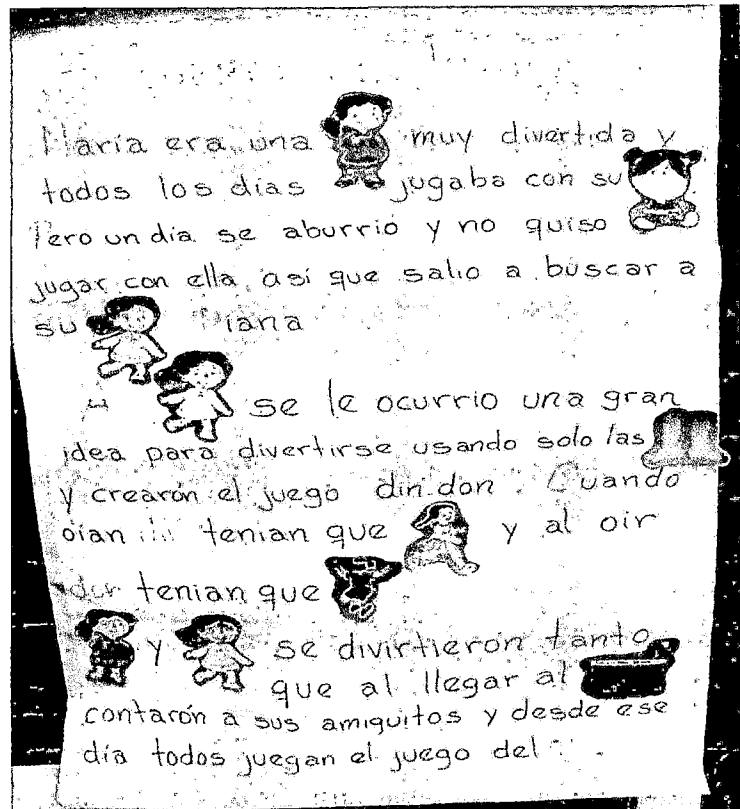 María era una muy divertida y
todos los días jugaba con su
Pero un día se aburrio y no quiso
jugar con ella así que salio a buscar a
su Diana
A se le ocurrio una gran
idea para divertirse usando solo las
y crearón el juego din don. Cuando
oían din tenian que y al oir
don tenian que
y se divirtieron tanto
que al llegar al
contarón a sus amiguitos y desde ese
día todos juegan el juego del